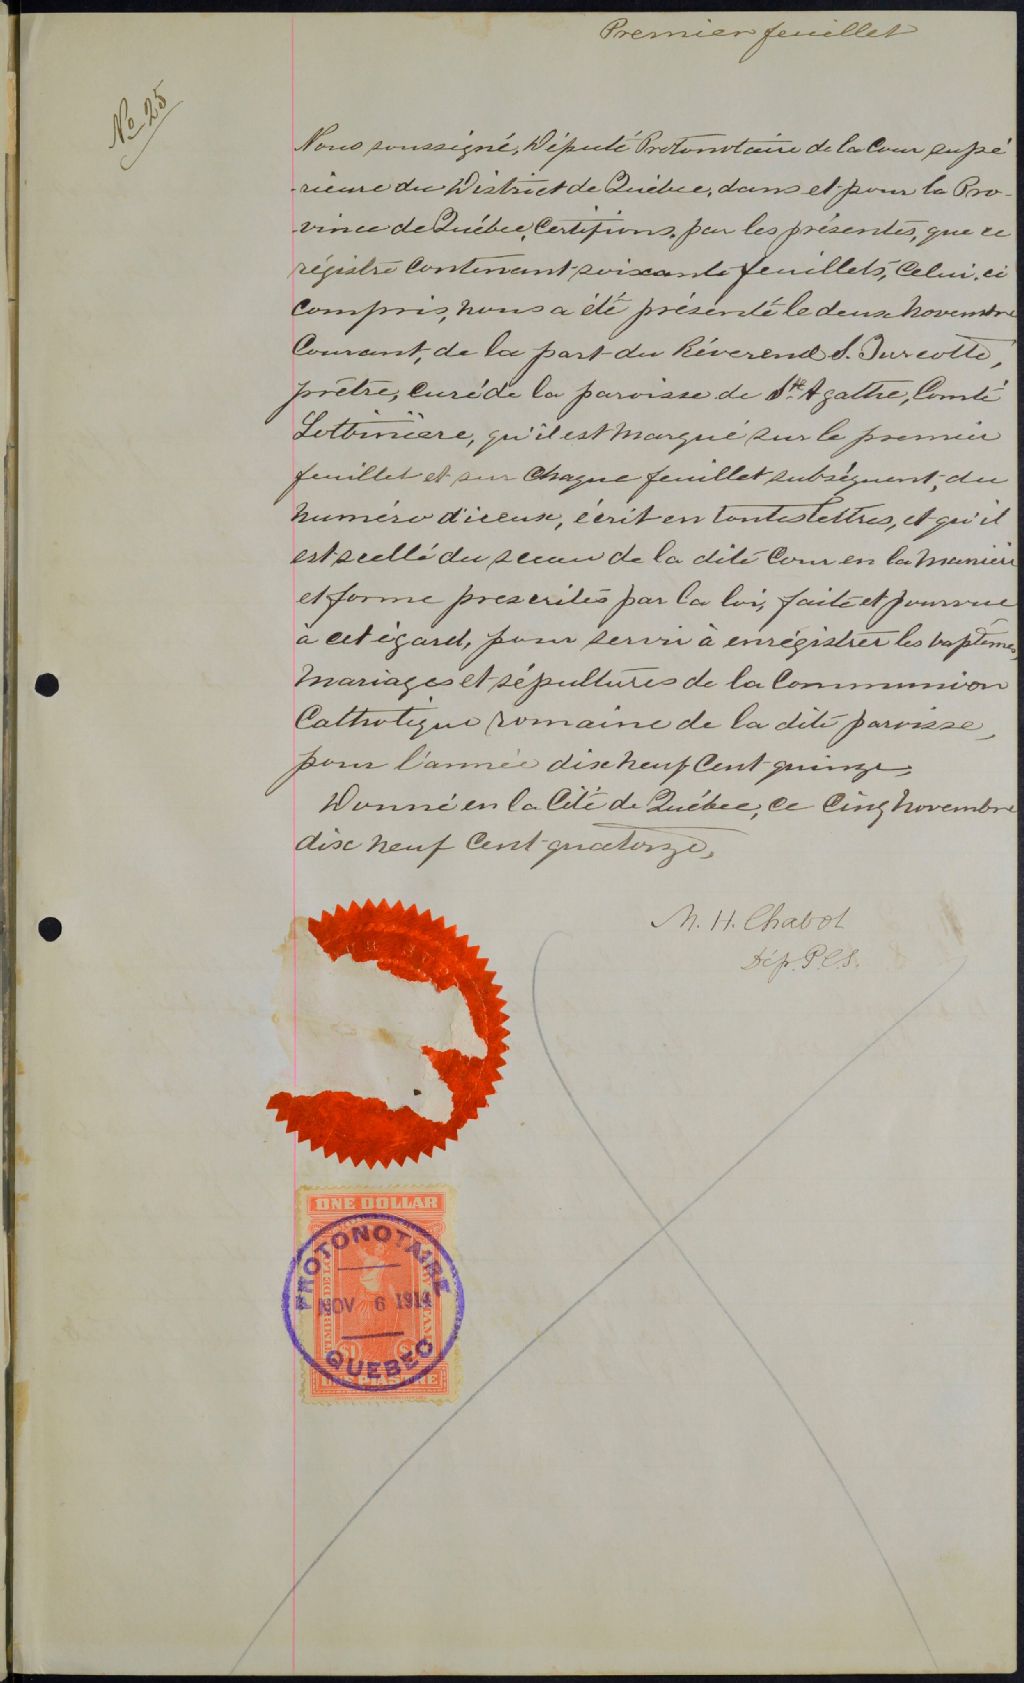 Premier feuillet
No 25
Nous soussigné, Député Protonotaire de la Cour supé
-rieure du District de Québec, dans et pour la Pro-
-vince de Québec, Certifions, par les présentes, que ce
régistre Contenant soixante feuillets, Celui-ci
Compris, nous a été présenté le deux Novembre
Courant, de la part du Révérend S. Turcotte,
prêtre, curé de la paroisse de Ste Agathe, Comté
Lotbinière, qu'il est Marqué sur le premier
feuillet et sur Chaque feuillet subséquent, du
Numéro d'iceux, écrit en toutes lettres, et qu'il
est scellé du sceau de la dite Cour en la Manière
et forme prescrites par la loi, faite et pourvue
à cet égard, pour servir à enrégistrer les baptêmes,
Mariages et sépultures de la Communion
Catholique romaine de la dite paroisse,
pour l'année dix neuf Cent quinze.
Donné en la Cité de Québec, ce Cinq Novembre
dix neuf Cent quatorze.
M. H. Chabot
Dép. P.C.S.
ONE DOLLAR
PROTONOTAIRE
NOV 6 1914
QUEBEC
$1
PIASTRE